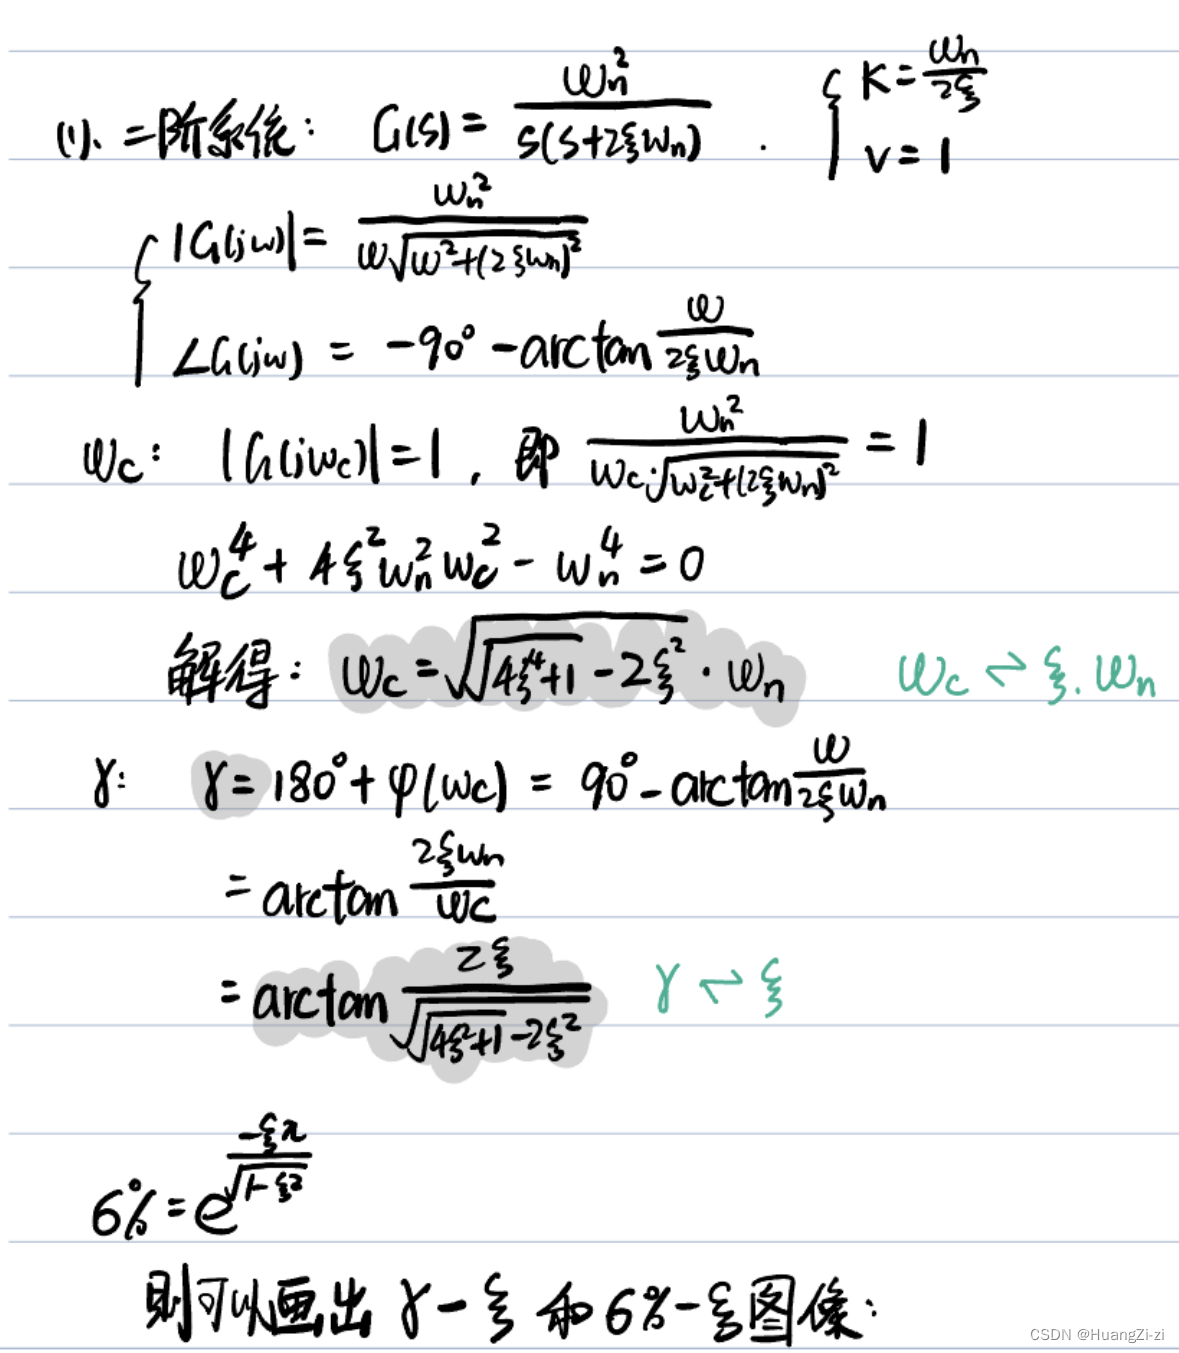 (1)、二阶系统: G(s) = ωn² / s(s+2ξωn) . { K = ωn/2ξ
v = 1
{ |G(jω)| = ωn² / ω√(ω²+(2ξωn)²)
∠G(jω) = -90° - arctan ω/2ξωn
ωc: |G(jωc)| = 1, 即 ωn² / ωc·√(ωc²+(2ξωn)²) = 1
ωc⁴ + 4ξ²ωn²ωc² - ωn⁴ = 0
解得: ωc = √(√(4ξ⁴+1) - 2ξ²) · ωn ωc ⇌ ξ. ωn
γ: γ = 180° + φ(ωc) = 90° - arctan ω/2ξωn
= arctan 2ξωn/ωc
= arctan 2ξ / √(√(4ξ²+1) - 2ξ²) γ ⇌ ξ
6% = e^(-ξπ/√(1-ξ²))
则可以画出 γ-ξ 和 6%-ξ图像:
CSDN @HuangZi-zi